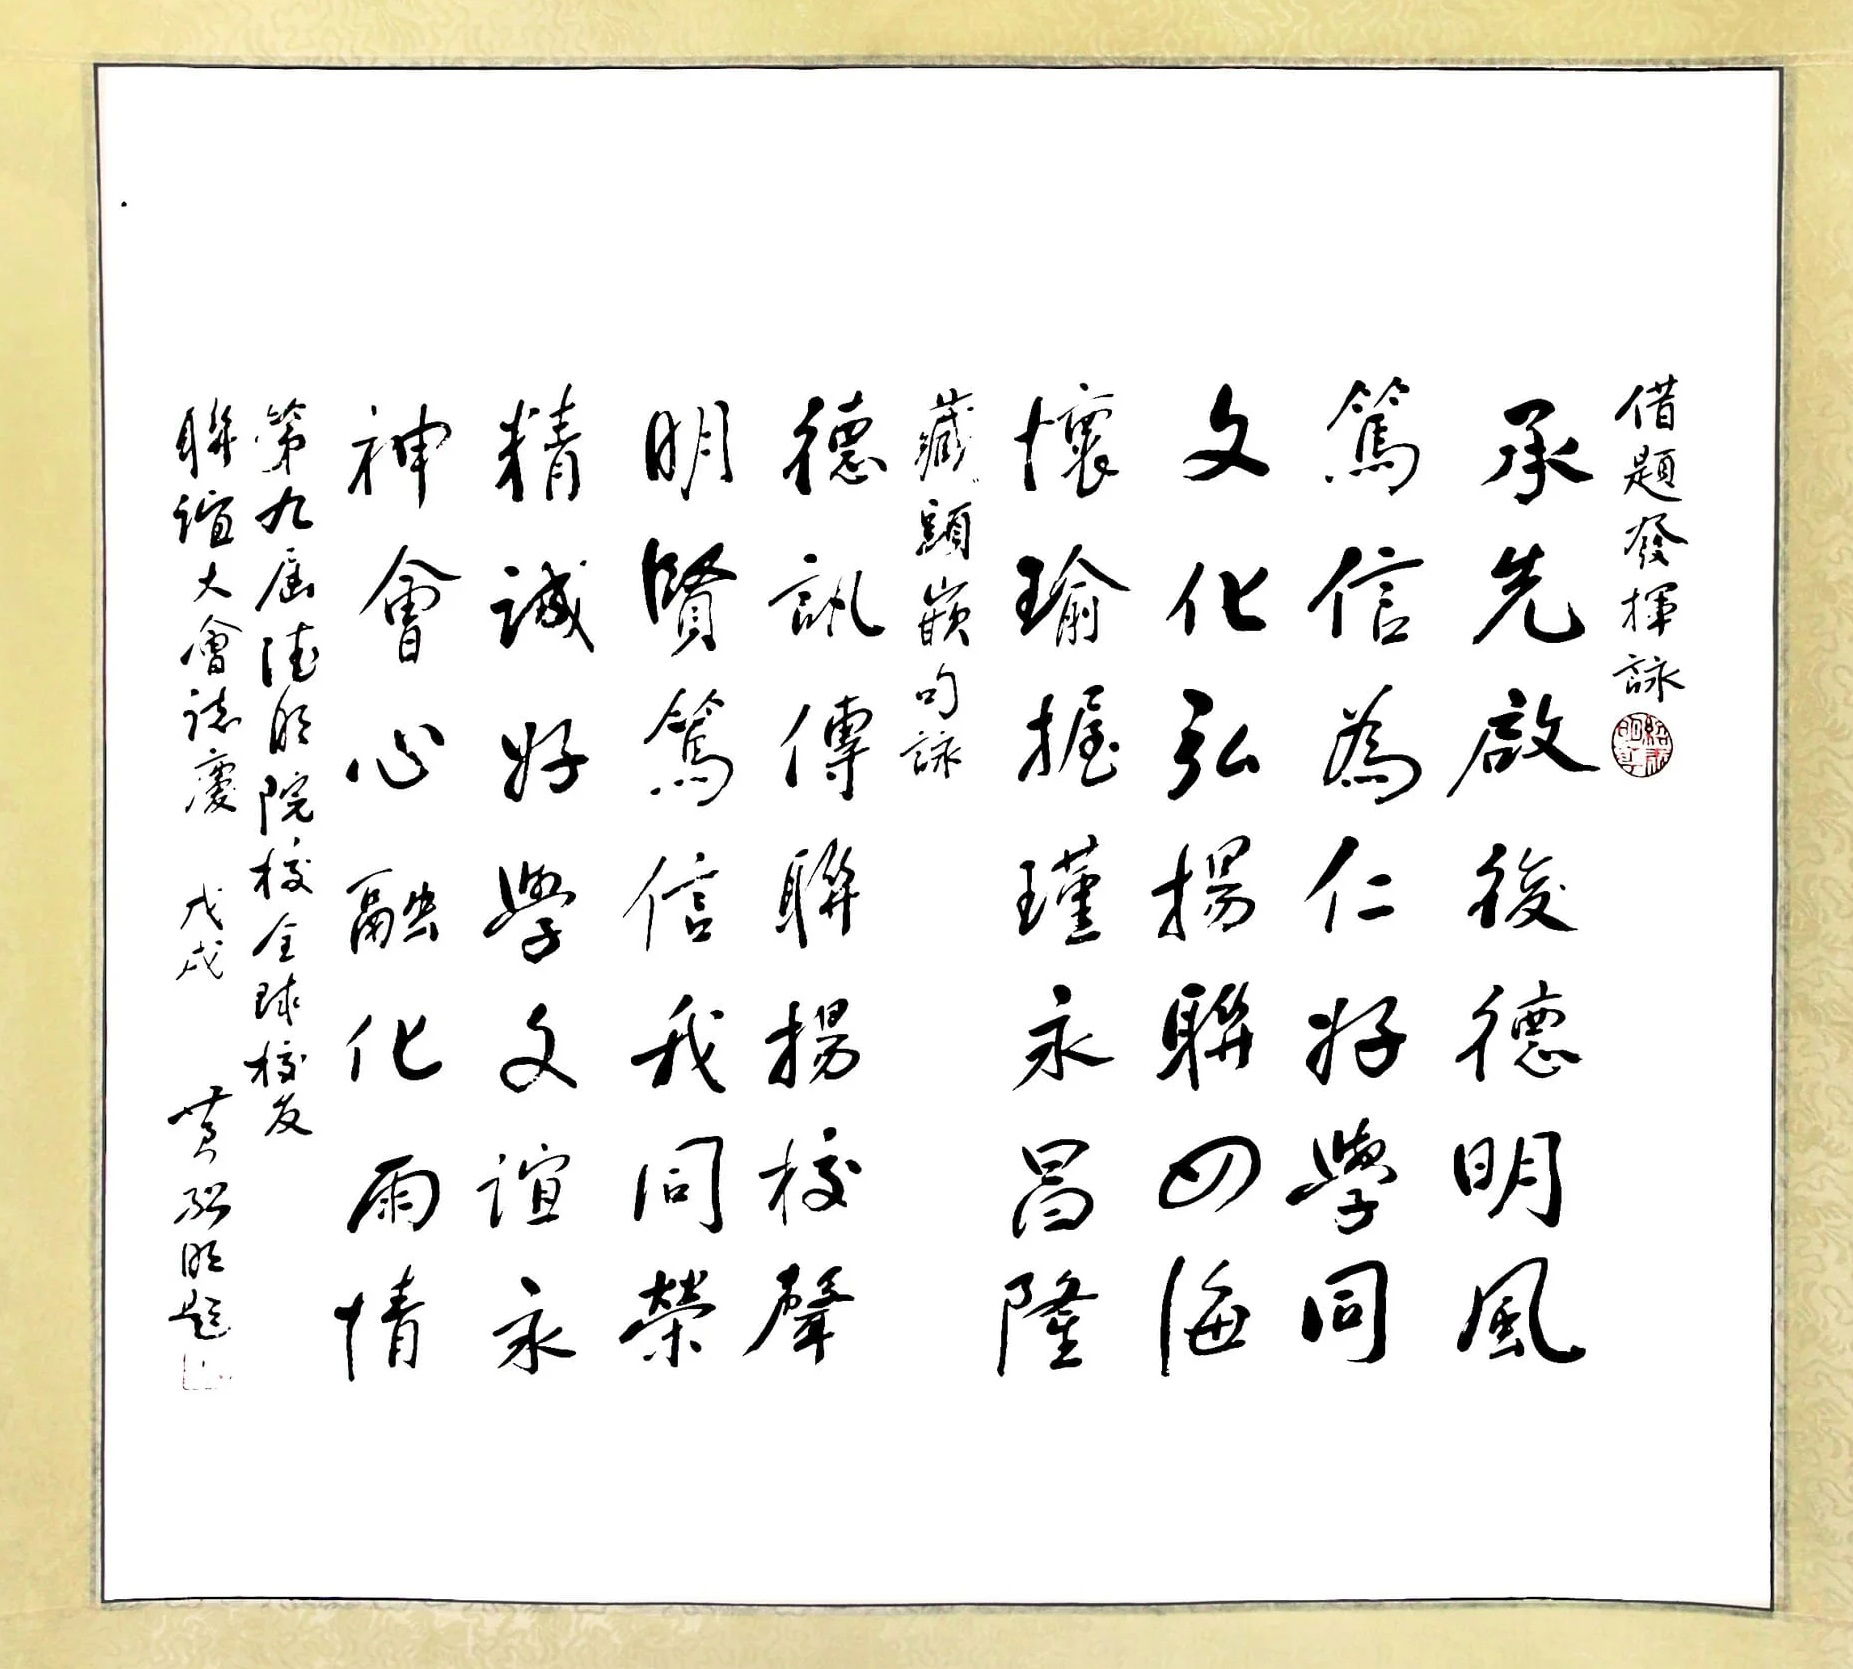 借題發揮詠
承先啟後德明風
篤信為仁好學同
文化弘揚聯四海
懷瑜握瑾永昌隆
藏頭嵌句詠
德訊傳聯揚校聲
明賢篤信我同榮
精誠好學文誼永
神會心融化雨情
第九屆德明院校全球校友
聯誼大會誌慶 戊戌 黃紹明題